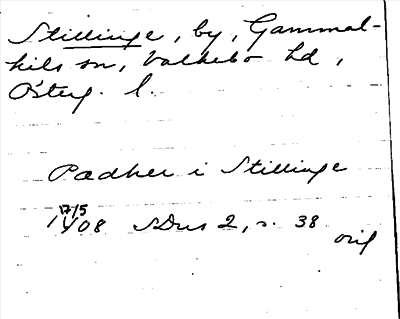 Stillinge, by, Gammal-
kils sn, Valkebo hd,
Österg. l.
Padher i Stillinge
17/5 1408 SDns 2, s. 38
orig